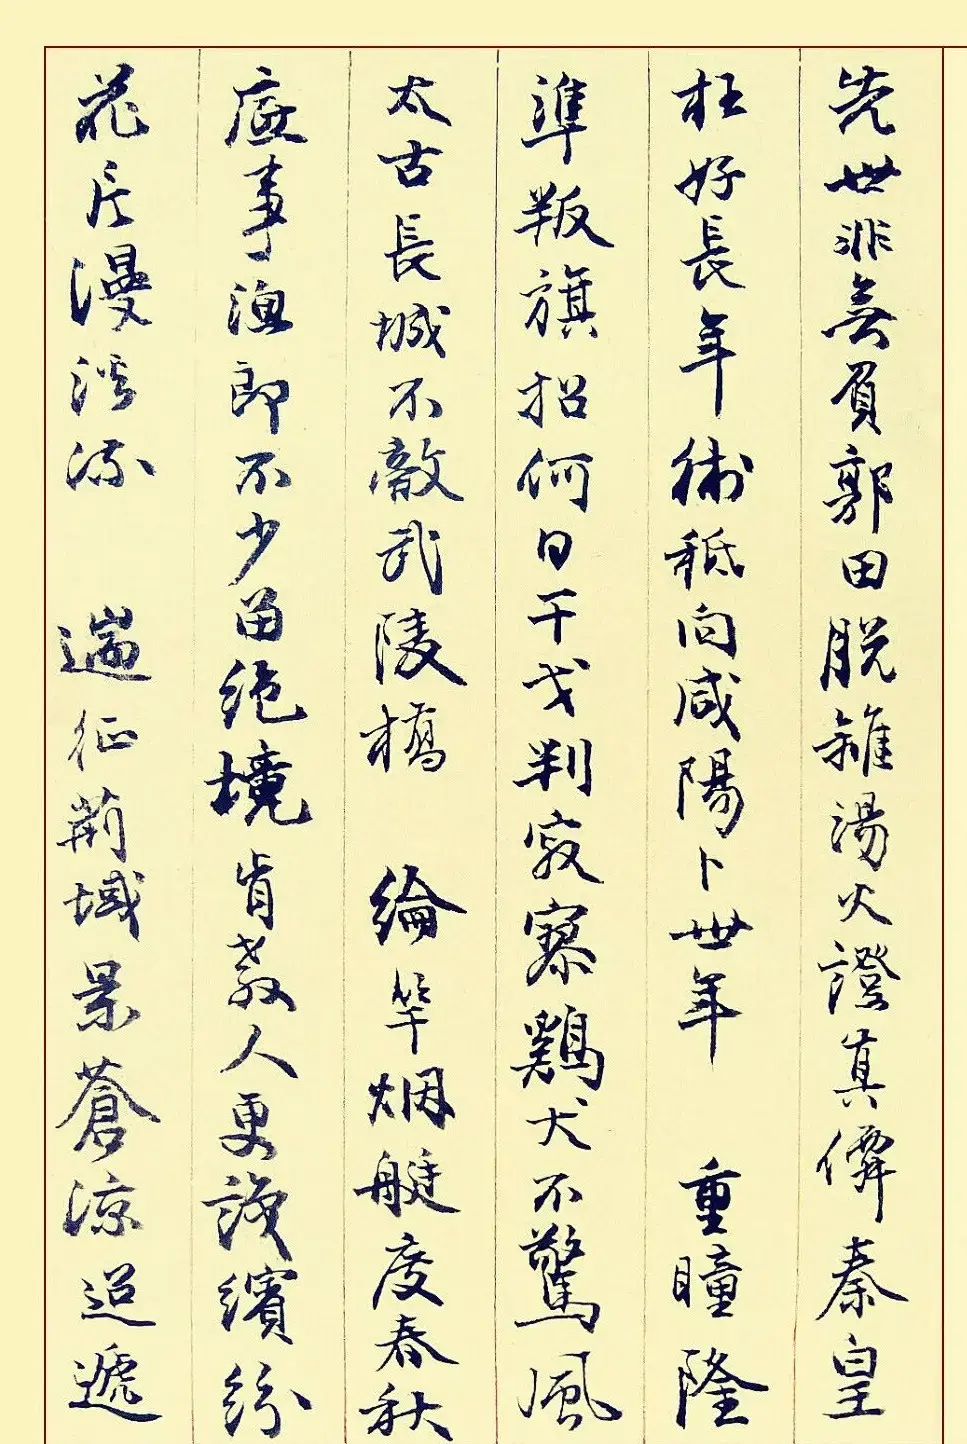 先世非無負郭田脫離湯火證真僊秦皇
枉好長年術秪向咸陽卜世年 重瞳隆
準叛旗招何日干戈判寂寥鷄犬不驚風
太古長城不敵武陵橋 綸竿烟艇度春秋
底事漁郎不少留絕境肯教人更識繽紛
花片漫流 遄征荊域景蒼涼迢遞